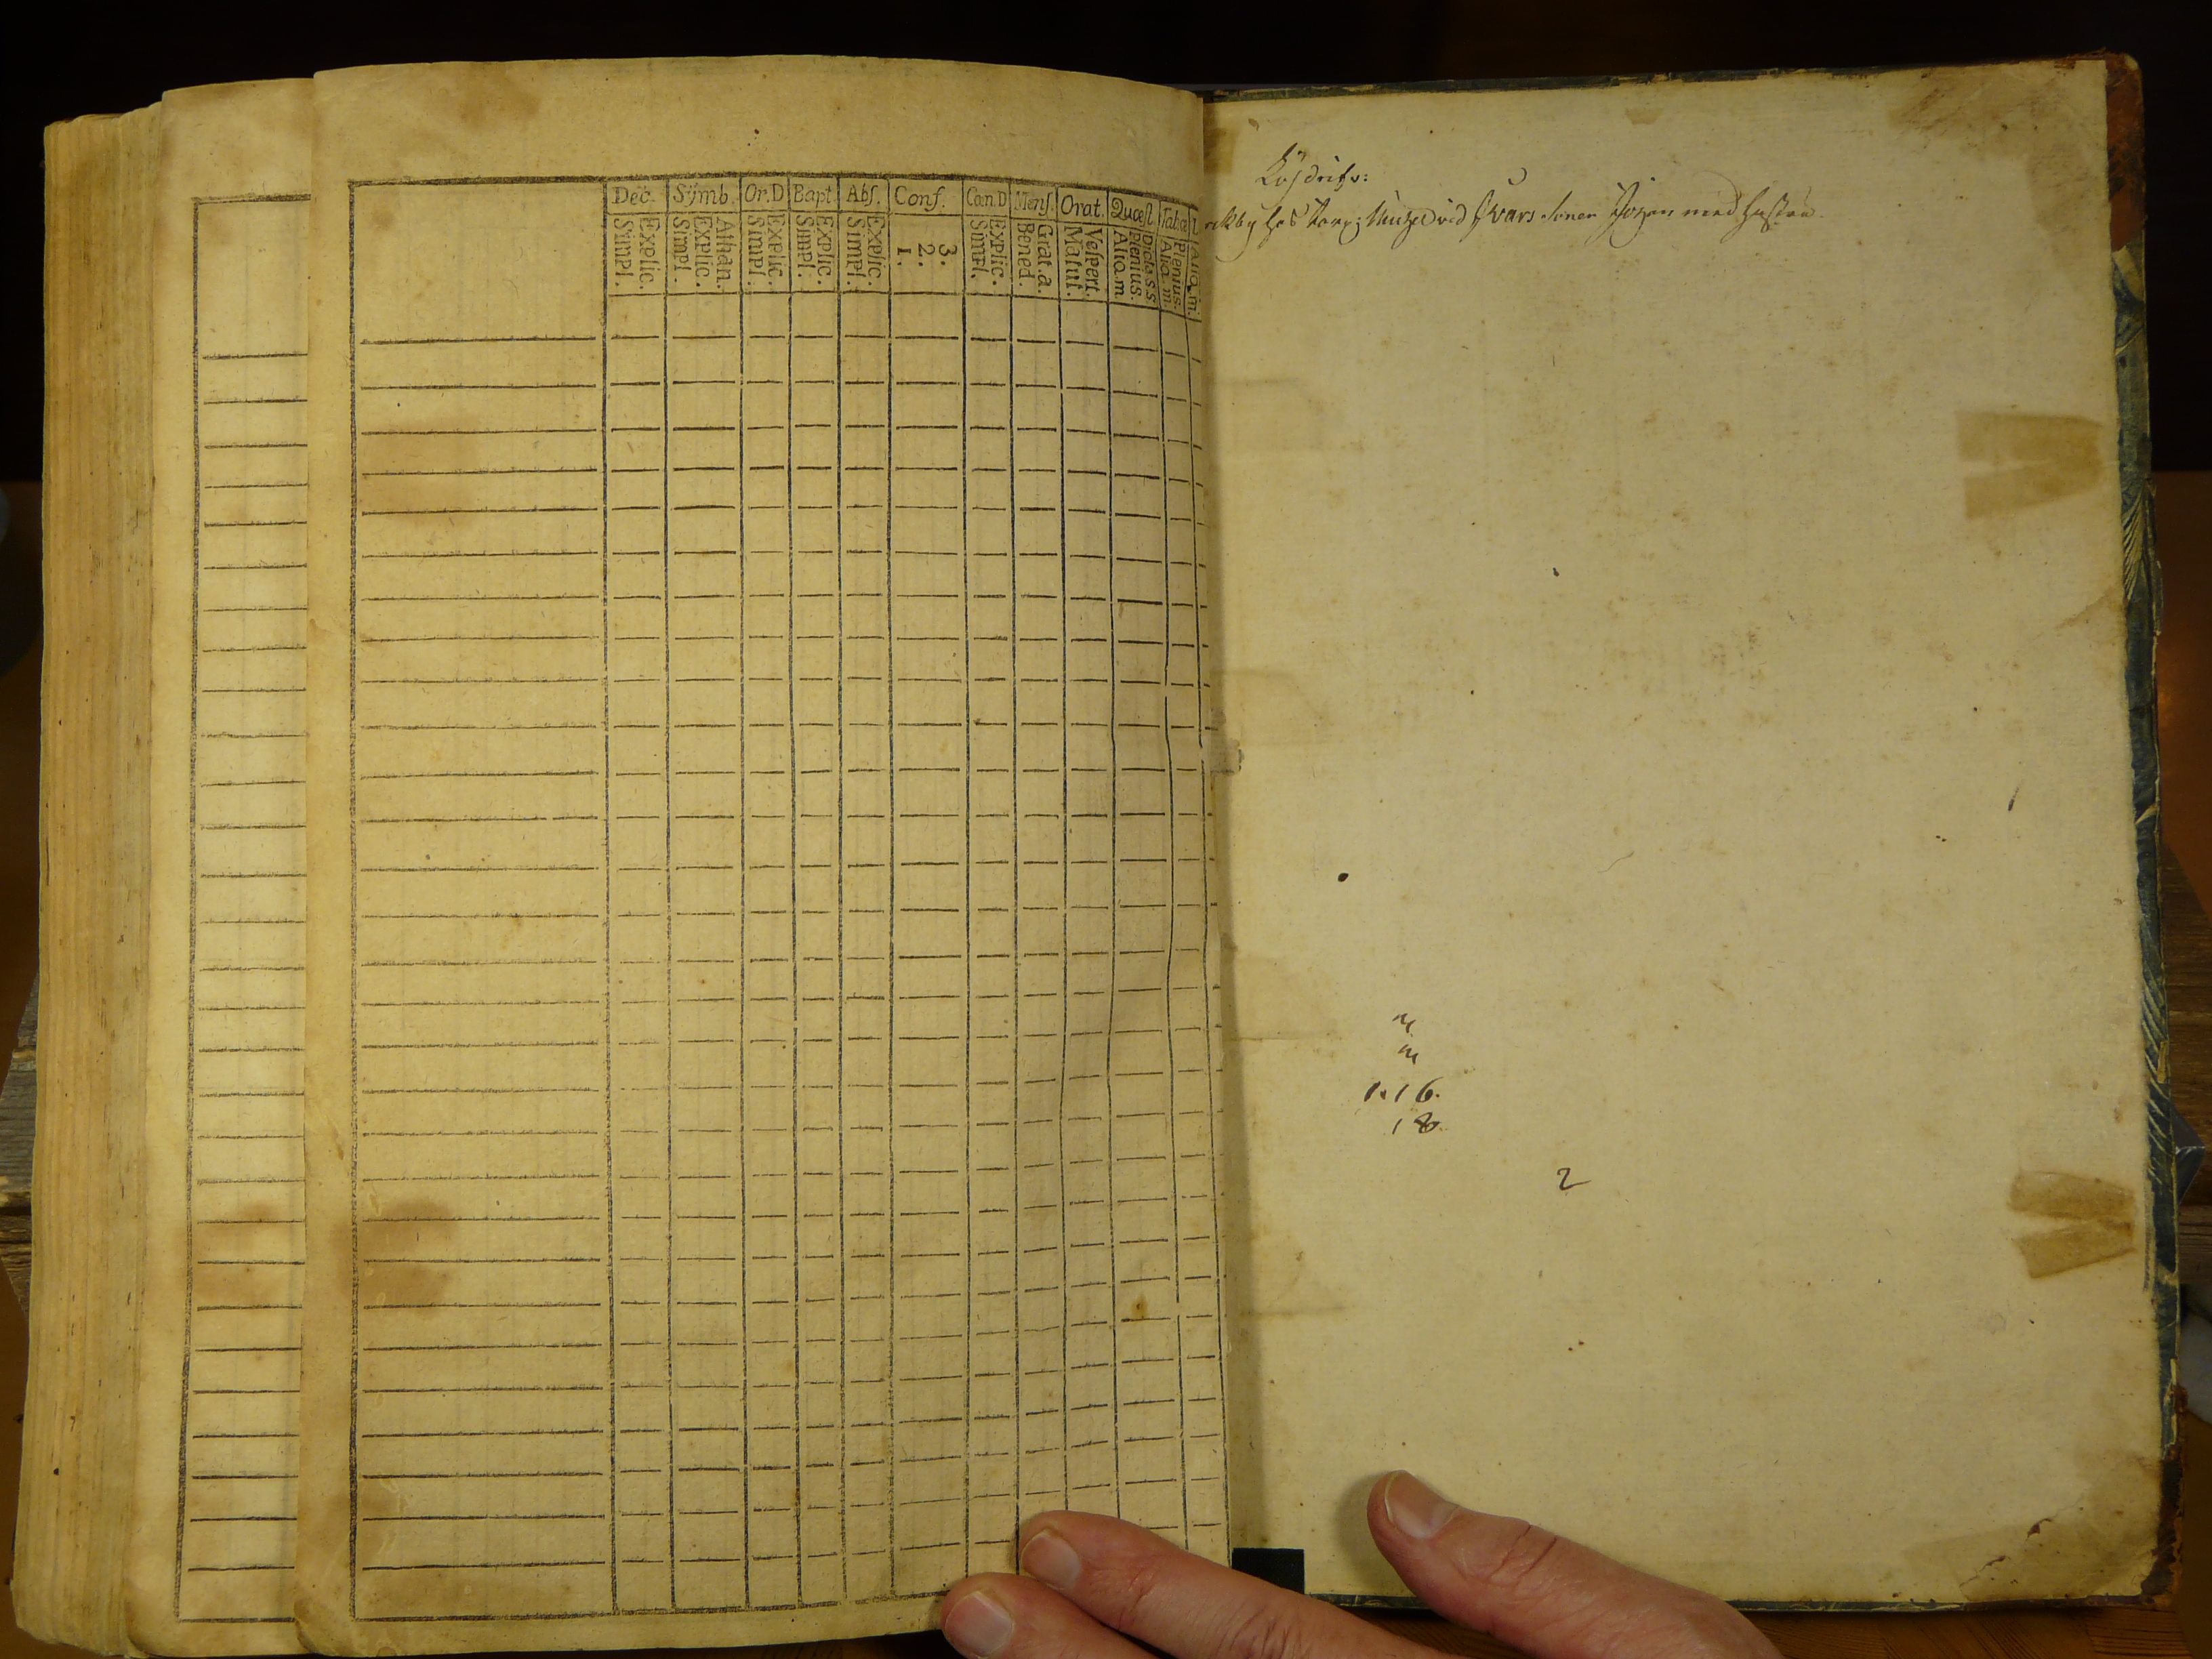 Dec. Symb. Or.D Bapt. Abs. Conf. Can.D Mens. Orat. Quæst. Tabæ
Explic. Simpl.
Athan. Explic. Simpl.
Explic. Simpl.
Explic. Simpl.
Explic. Simpl.
3. 2. 1.
Explic. Simpl.
Grat.a. Bened.
Vespert. Matut.
Dicta.s.s Plenius. Aliq.m
Plenius. Aliq.m.
Aliq.m.
hos Torp: vid Svars Sonen Johan med
1.16.
18
2